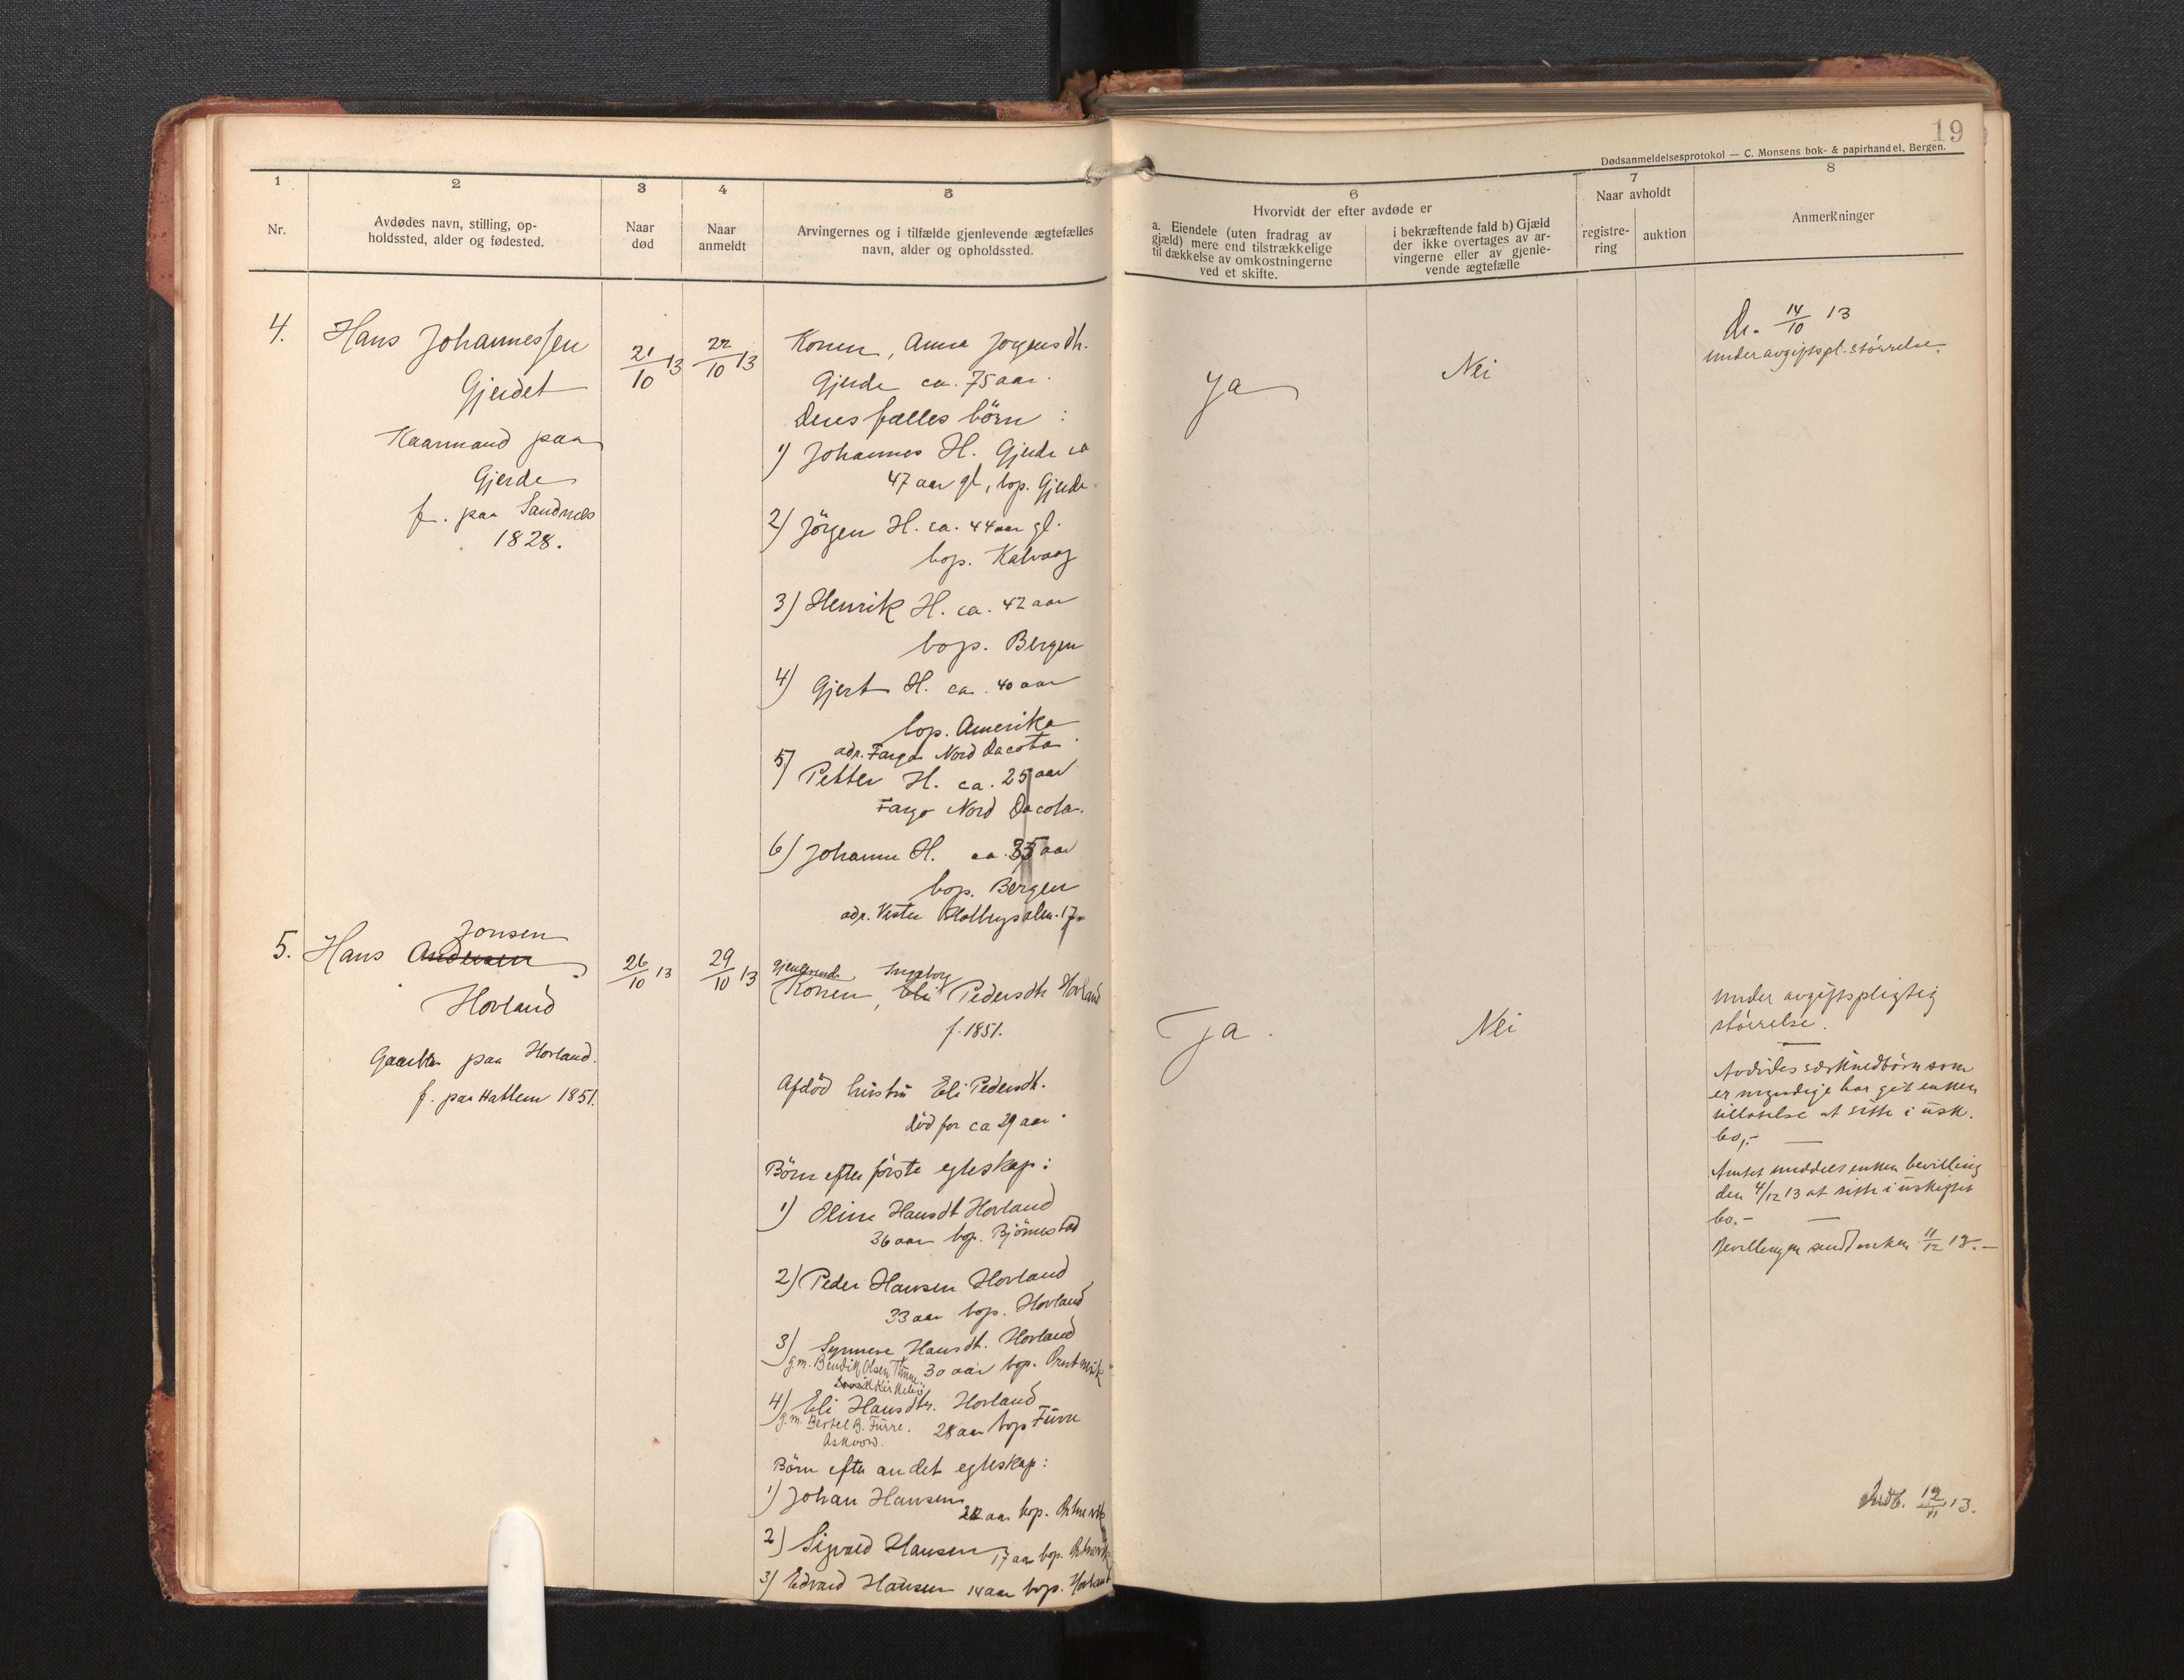 19
Dødsanmeldelsesprotokol — C. Monsens bok- & papirhandel, Bergen.
1
Nr.
2
Avdødes navn, stilling, op-
holdssted, alder og fødested.
3
Naar
død
4
Naar
anmeldt
5
Arvingernes og i tilfælde gjenlevende ægtefælles
navn, alder og opholdssted.
6
Hvorvidt der efter avdøde er
a. Eiendele (uten fradrag av
gjæld) mere end tilstrækkelige
til dækkelse av omkostningerne
ved et skifte.
i bekræftende fald b) Gjæld
der ikke overtages av ar-
vingerne eller av gjenle-
vende ægtefælle
7
Naar avholdt
registre-
ring
auktion
8
Anmerkninger
4.
Hans Johannessen
Gjerdet
Kaarmand paa
Gjerde
f. paa Sandnes
1828.
21/10 13
22/10 13
Konen, Anna Jørgensdh.
Gjerde ca. 75 aar.
Deres fælles börn :
1) Johannes H. Gjerde ca
47 aar gl, bop. Gjerde
2) Jörgen H. ca. 44 aar gl.
bop. Kalvaag
3) Henrik H. ca. 42 aar
bop. Bergen
4) Gjert H. ca. 40 aar
bop. Amerika
adr. Fargo Nord Dacota
5) Petter H. ca. 25 aar
Fargo Nord Dacota.
6) Johanne H. ca. 35 aar
bop. Bergen
adr. Vestre 17
Ja
Nei
14/10 13
under avgiftspl. störrelse.
5.
Jonsen
Hans Andersen
Hovland
Gaardbr. paa Hovland.
f. paa Hatlem 1851.
26/10 13
29/10 13
Gjenlevende Ingeborg
Konen, Eli Pedersdtr Hovland
f. 1851.
Afdöd hustru Eli Pedersdt.
död for ca 29 aar
Börn efter förste egteskap :
1) Oline Hansdt Hovland
36 aar bop. Björnestad
2) Peder Hansen Hovland
33 aar bop. Hovland
3) Synneve Hansdt. Hovland
g.m. Bendik Olsen 30 aar bop.
4) Eli Hansdtr. Hovland
g.m. Bertel B. Fürre. 28 aar bop Fürre
Askvold.
Börn efter andet egteskap :
1) Johan Hansen
aar bop.
2) Sigvald Hansen 17 aar bop.
3) Edvard Hansen 14 aar bop. Hovland
Ja.
Nei
Under avgiftspligtig
störrelse.
Avdödes særkuldbörn som
er myndige har git enken
tillatelse at sitte i usk.
bo.-
Amtet meddelt enken bevilling
den 4/12 13 at sitte i uskiftet
bo.-
Bevillingen sendt enken 11/12 13.-
12/11 13.